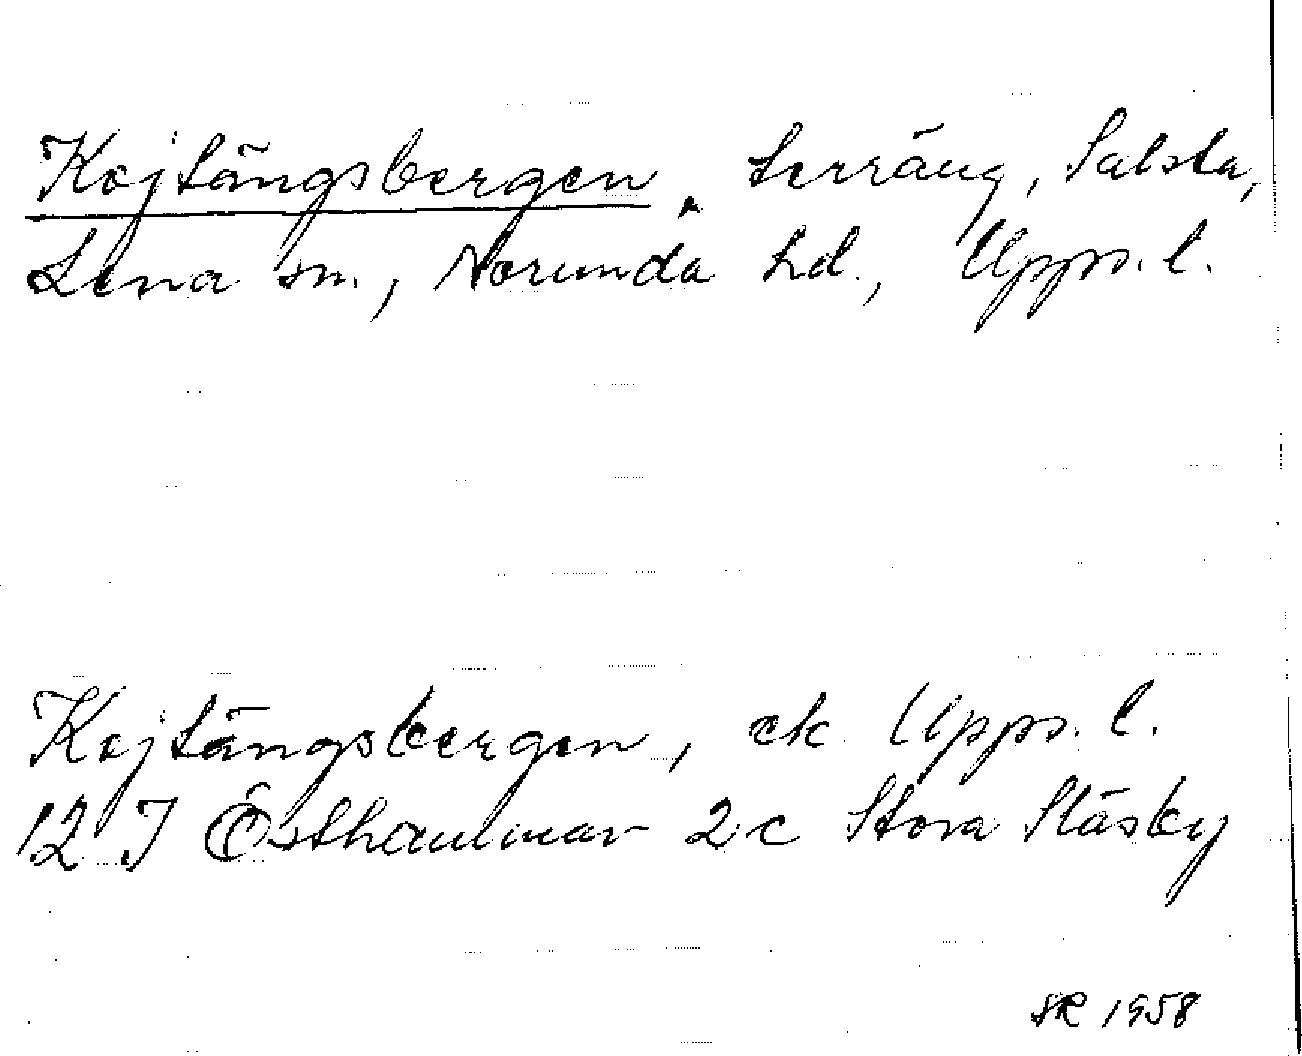 Kojtängsbergen, terräng, Salsta,
Lena sn., Norunda hd., Upps. l.
Kojtängsbergen, ek. Upps. l.
12 I Östhammar 2 c Stora Stäsby
SR 1958